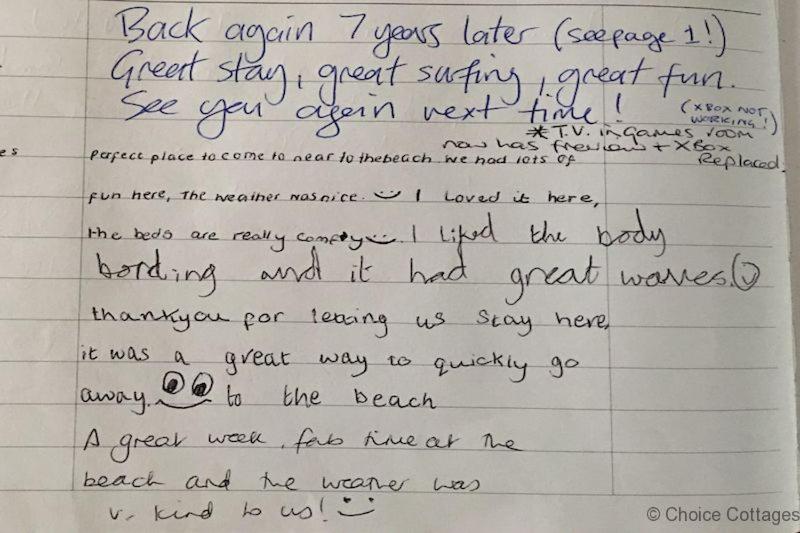 Back again 7 years later (see page 1!)
Great stay, great surfing, great fun.
See you again next time! (XBOX NOT WORKING!)
* T.V. in games room
now has freeview + XBox Replaced.
es
Perfect place to come to near to the beach we had lots of
fun here, The weather was nice. I loved it here,
the beds are really comfy. I liked the body
bording and it had great waves.
thankyou for leting us stay here,
it was a great way to quickly go
away. to the beach
A great week, fab time at the
beach and the weather was
v. kind to us!
© Choice Cottages